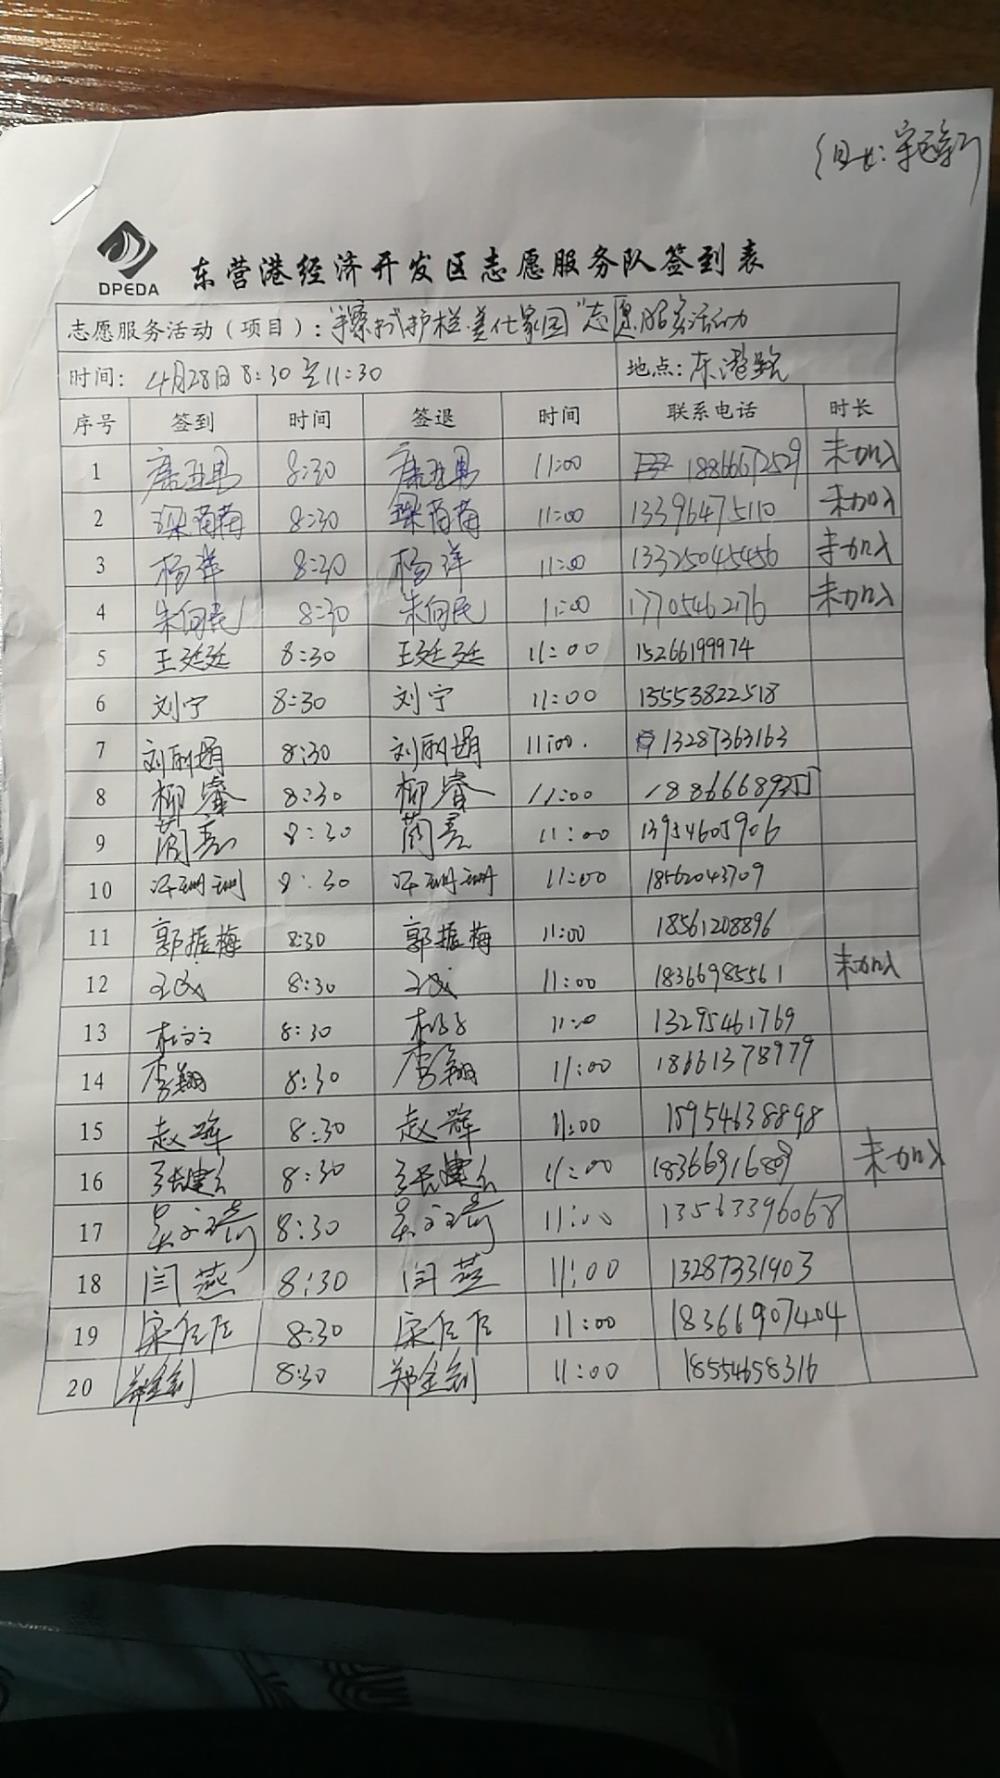 组长:
DPEDA
东营港经济开发区志愿服务队签到表
志愿服务活动(项目):"擦拭护栏·美化家园"志愿服务活动
时间: 4月28日 8:30至11:30 地点: 东港路
序号 签到 时间 签退 时间 联系电话 时长
1 席亚男 8:30 席亚男 11:00 18866657529 未加入
2 梁苗苗 8:30 梁苗苗 11:00 13396475110 未加入
3 杨洋 8:30 杨洋 11:00 13325045456 未加入
4 朱向民 8:30 朱向民 11:00 17705462176 未加入
5 王廷廷 8:30 王廷廷 11:00 15266199974
6 刘宁 8:30 刘宁 11:00 13553822518
7 刘丽娟 8:30 刘丽娟 11:00. 13287363163
8 柳睿 8:30 柳睿 11:00
9 8:30 11:00 13954605906
10 8:30 11:00 18562043709
11 郭振梅 8:30 郭振梅 11:00 18561208896
12 8:30 11:00 18366985561 未加入
13 8:30 11:00 13295461769
14 李翔 8:30 李翔 11:00 18661378979
15 赵辉 8:30 赵辉 11:00 15954638898
16 8:30 11:00 18366916889 未加入
17 8:30 11:00 13563396068
18 闫燕 8:30 闫燕 11:00 13287331903
19 8:30 11:00 18366907404
20 郑金剑 8:30 郑金剑 11:00 18554658316